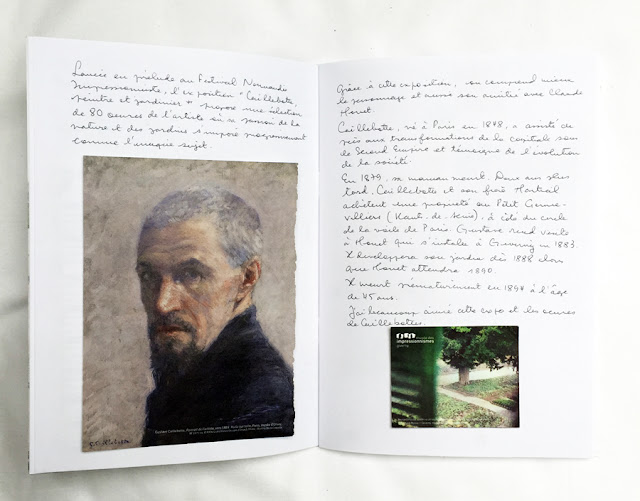 Lancée en prélude au Festival Normandie
Impressionniste, l'exposition "Caillebotte,
peintre et jardinier" propose une sélection
de 80 oeuvres de l'artiste où sa passion de la
nature et des jardins s'impose progressivement
comme l'unique sujet.
G. Caillebotte
Gustave Caillebotte, Portrait de l'artiste, vers 1889. Paris, musée d'Orsay
Grâce à cette exposition, on comprend mieux
le personnage et aussi son amitié avec Claude
Monet.
Caillebotte, né à Paris en 1848, a assisté de
près aux transformations de la capitale sous
le Second Empire et témoigne de l'évolution
de la société.
En 1879, sa maman meurt. Deux ans plus
tard, Caillebotte et son frère Martial
achètent une propriété au Petit Genne-
villiers (Hauts-de-Seine), à côté du cercle
de la voile de Paris. Gustave rend visite
à Monet qui s'installe à Giverny en 1883.
Il développera son jardin dès 1888 alors
que Monet attendra 1890.
Il meurt prématurément en 1894 à l'âge
de 45 ans.
J'ai beaucoup aimé cette expo et les oeuvres
de Caillebotte.
impressionnismes
giverny